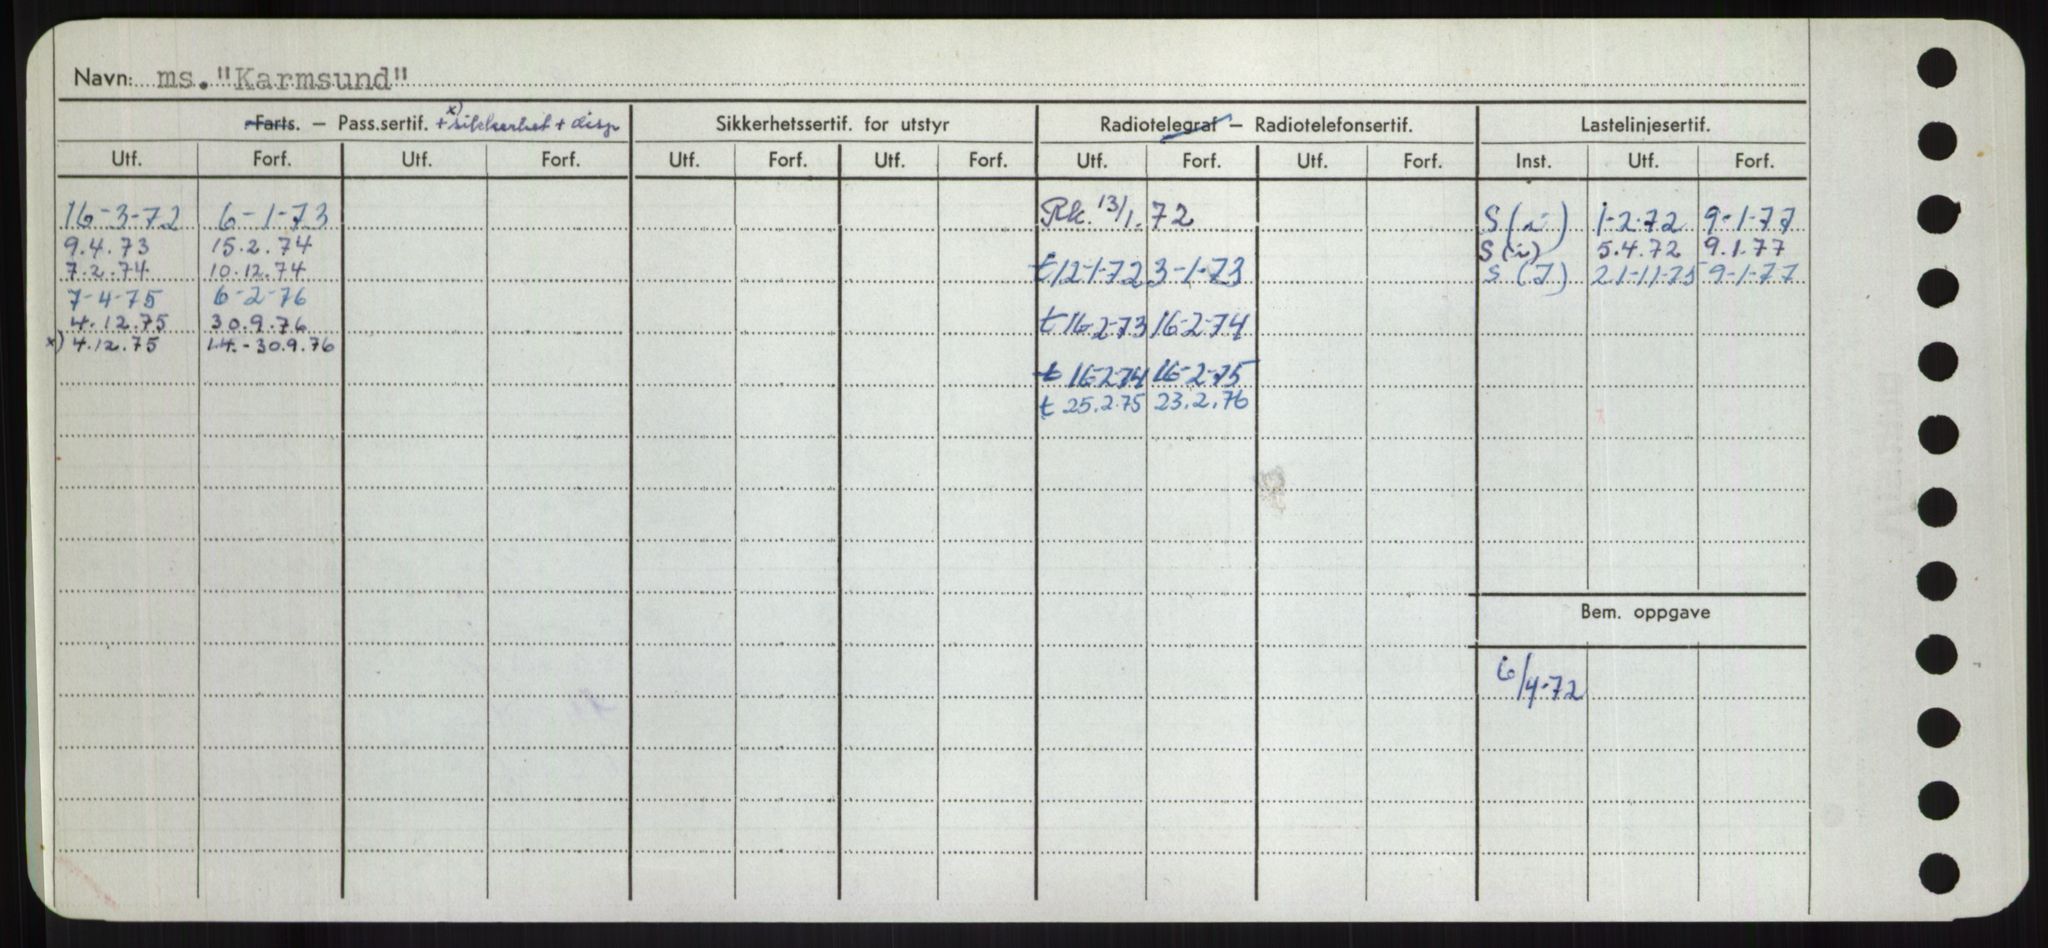 Navn: ms. "Karmsund"
Farts. – Pass.sertif. + x) sikkerhet + disp Sikkerhetssertif. for utstyr Radiotelegraf – Radiotelefonsertif. Lastelinjesertif.
Utf. Forf. Utf. Forf. Utf. Forf. Utf. Forf. Utf. Forf. Utf. Forf. Inst. Utf. Forf.
16-3-72 6-1-73 Rk. 13/1.72 S (i) 1-2-72 9-1-77
9.4.73 15.2.74 S (i) 5.4.72 9.1.77
7.2.74 10.12.74 t 12-1-72 3-1-73 S (I) 21-11-75 9-1-77
7-4-75 6-2-76
4.12.75 30.9.76 t 16-2-73 16-2-74
x) 4.12.75 1.4.-30.9.76
t 16-2-74 16-2-75
t 25.2.75 23.2.76
Bem. oppgave
6/4-72